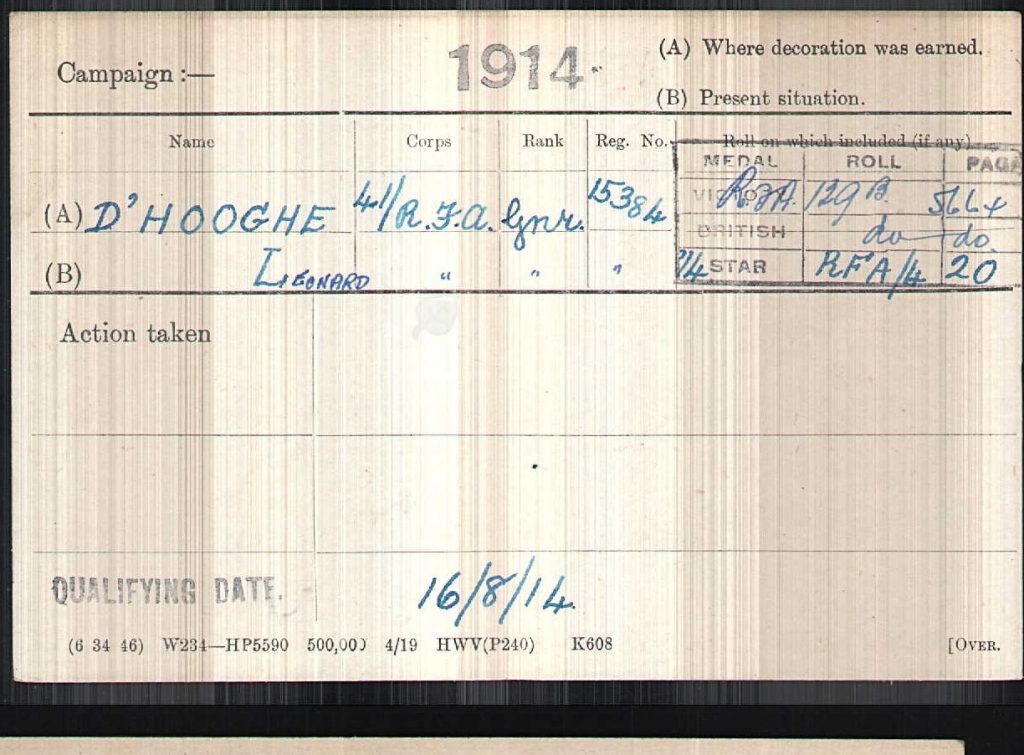 Campaign :— 1914 (A) Where decoration was earned.
(B) Present situation.
Name Corps Rank Reg. No. Roll on which included (if any).
MEDAL ROLL PAGE
(A) D'HOOGHE 41/R.F.A. Gnr. 15384 VICTORY R.F.A. 129B. 5664
BRITISH do do.
(B) Leonard " " " 14 STAR RFA/4 20
Action taken
QUALIFYING DATE. 16/8/14.
(6 34 46) W234—HP5590 500,000 4/19 HWV(P240) K608 [OVER.